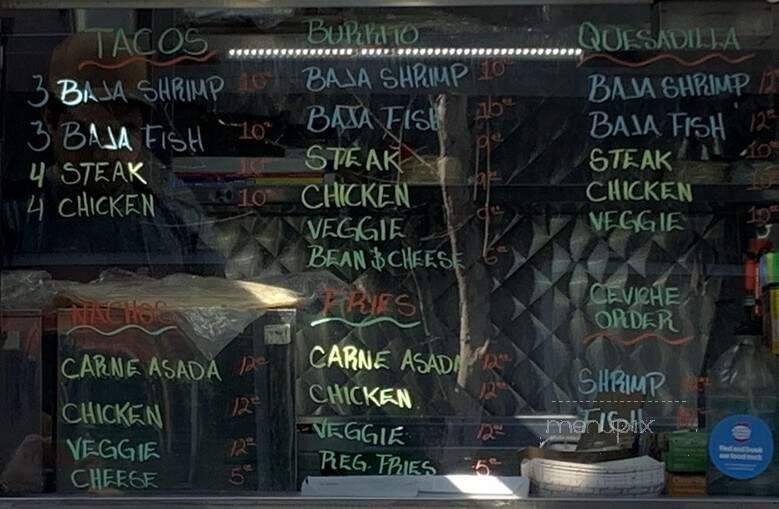 TACOS
3 BAJA SHRIMP 10⁰⁰
3 BAJA FISH 10⁰⁰
4 STEAK 10⁰⁰
4 CHICKEN 10⁰⁰
BURRITO
BAJA SHRIMP 10⁰⁰
BAJA FISH 10⁰⁰
STEAK 9⁰⁰
CHICKEN 9⁰⁰
VEGGIE
BEAN $ CHEESE
QUESADILLA
BAJA SHRIMP
BAJA FISH
STEAK
CHICKEN
VEGGIE
NACHOS
CARNE ASADA 12⁰⁰
CHICKEN 12⁰⁰
VEGGIE 12⁰⁰
CHEESE 5⁰⁰
FRIES
CARNE ASADA 12⁰⁰
CHICKEN 12⁰⁰
VEGGIE 12⁰⁰
REG. FRIES 5⁰⁰
CEVICHE
ORDER
SHRIMP
FISH
menupix